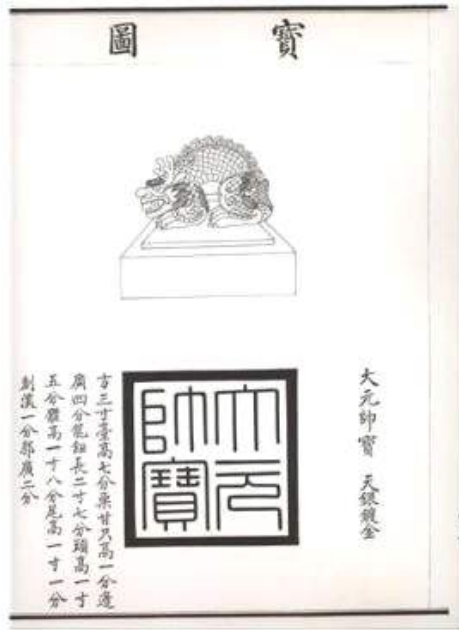 寶圖
大元帥寶 天銀鍍金
大元
帥寶
方三寸臺高七分甘只高一分邊
廣四分龍鈕長二寸七分頭高一寸
五分體高一寸八分尾高一寸一分
刻深一分郭廣二分